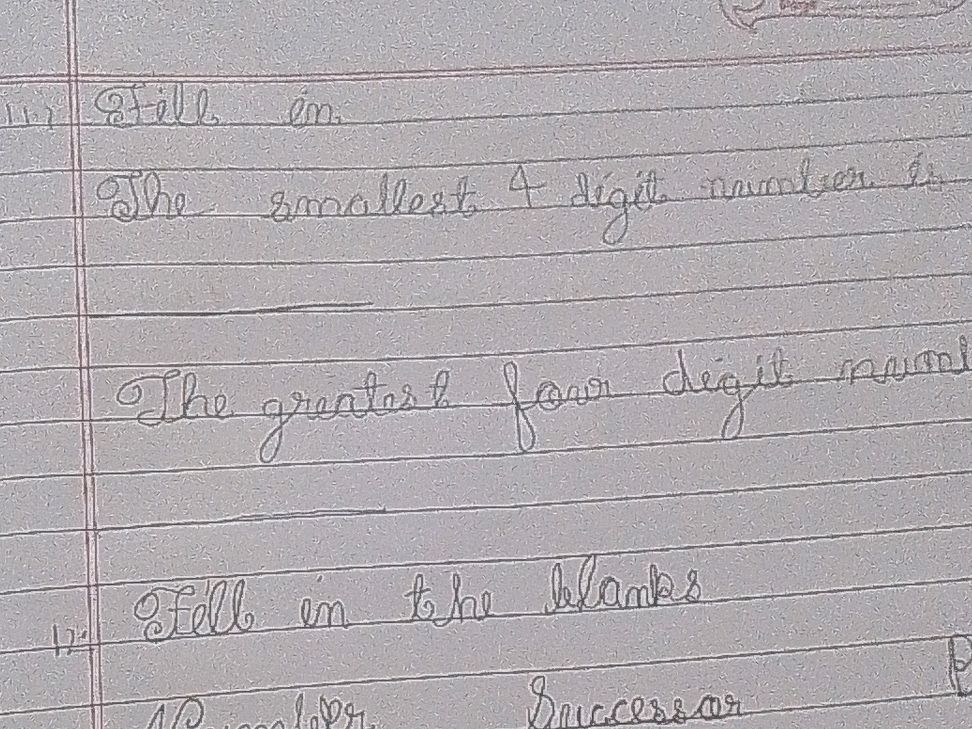 11.) Fill in
The smallest 4 digit number is
The greatest four digit numb
12. Fill in the blanks
Number Successor P